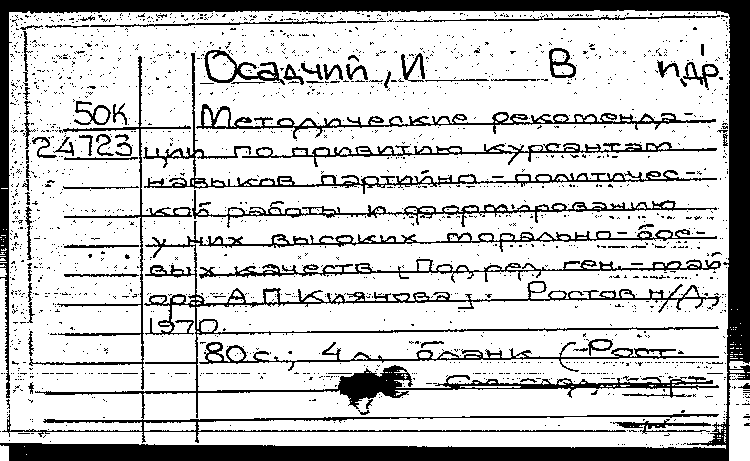 Осадчий, И В и др.
50К Методические рекоменда-
24723 ции по привитию курсантам
навыков партийно-политичес-
кой работы и формированию
у них высоких морально-бое-
вых качеств [Под ред, ген.-май-
ора А.П Килянова]. Ростов н/Д,
1970.
80 с.; 4 л. бланк (-Рост.
См след карт